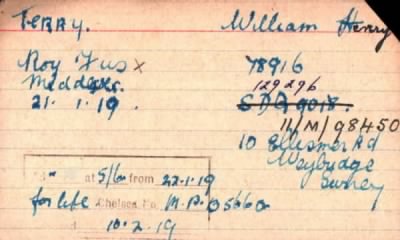 TERRY. William Henry
Roy Fus x 78916
Middlesex. 129296
21.1.19. SDR 9018.
11/M/98450
10 Ellesmer Rd
Weybridge
Surrey
at 5/6 from 22.1.19
for life Chelsea No. M.B.O5660
10.2.19